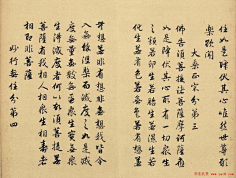 住如是降伏其心唯然世尊願
樂欲聞
大乘正宗分第三
佛告須菩提諸菩薩摩訶薩應
如是降伏其心所有一切眾生
之類若卵生若胎生若濕生若
化生若有色若無色若有想若無
想若非有想非無想我皆令
入無餘涅槃而滅度之如是滅
度無量無數無邊眾生實無眾
生得滅度者何以故須菩提若
菩薩有我相人相眾生相壽者
相即非菩薩
妙行無住分第四